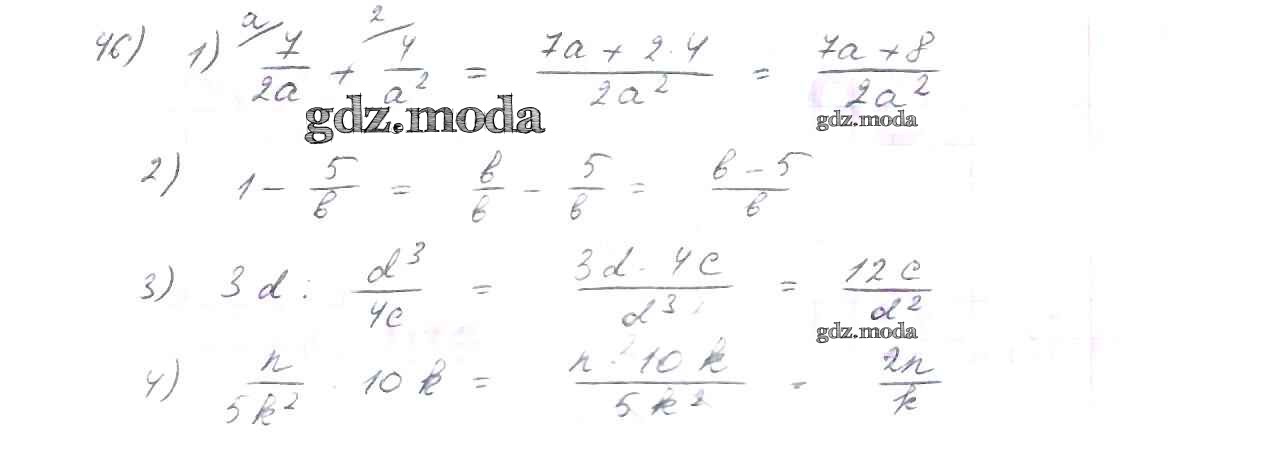 46) 1) a/ 7/2a + 2/ 4/a² = (7a + 2·4)/2a² = (7a + 8)/2a²
gdz.moda gdz.moda
2) 1 - 5/b = b/b - 5/b = (b - 5)/b
3) 3d : d³/4c = (3d · 4c)/d³ = 12c/d²
gdz.moda
4) n/5k² · 10k = (n · 10k)/5k² = 2n/k